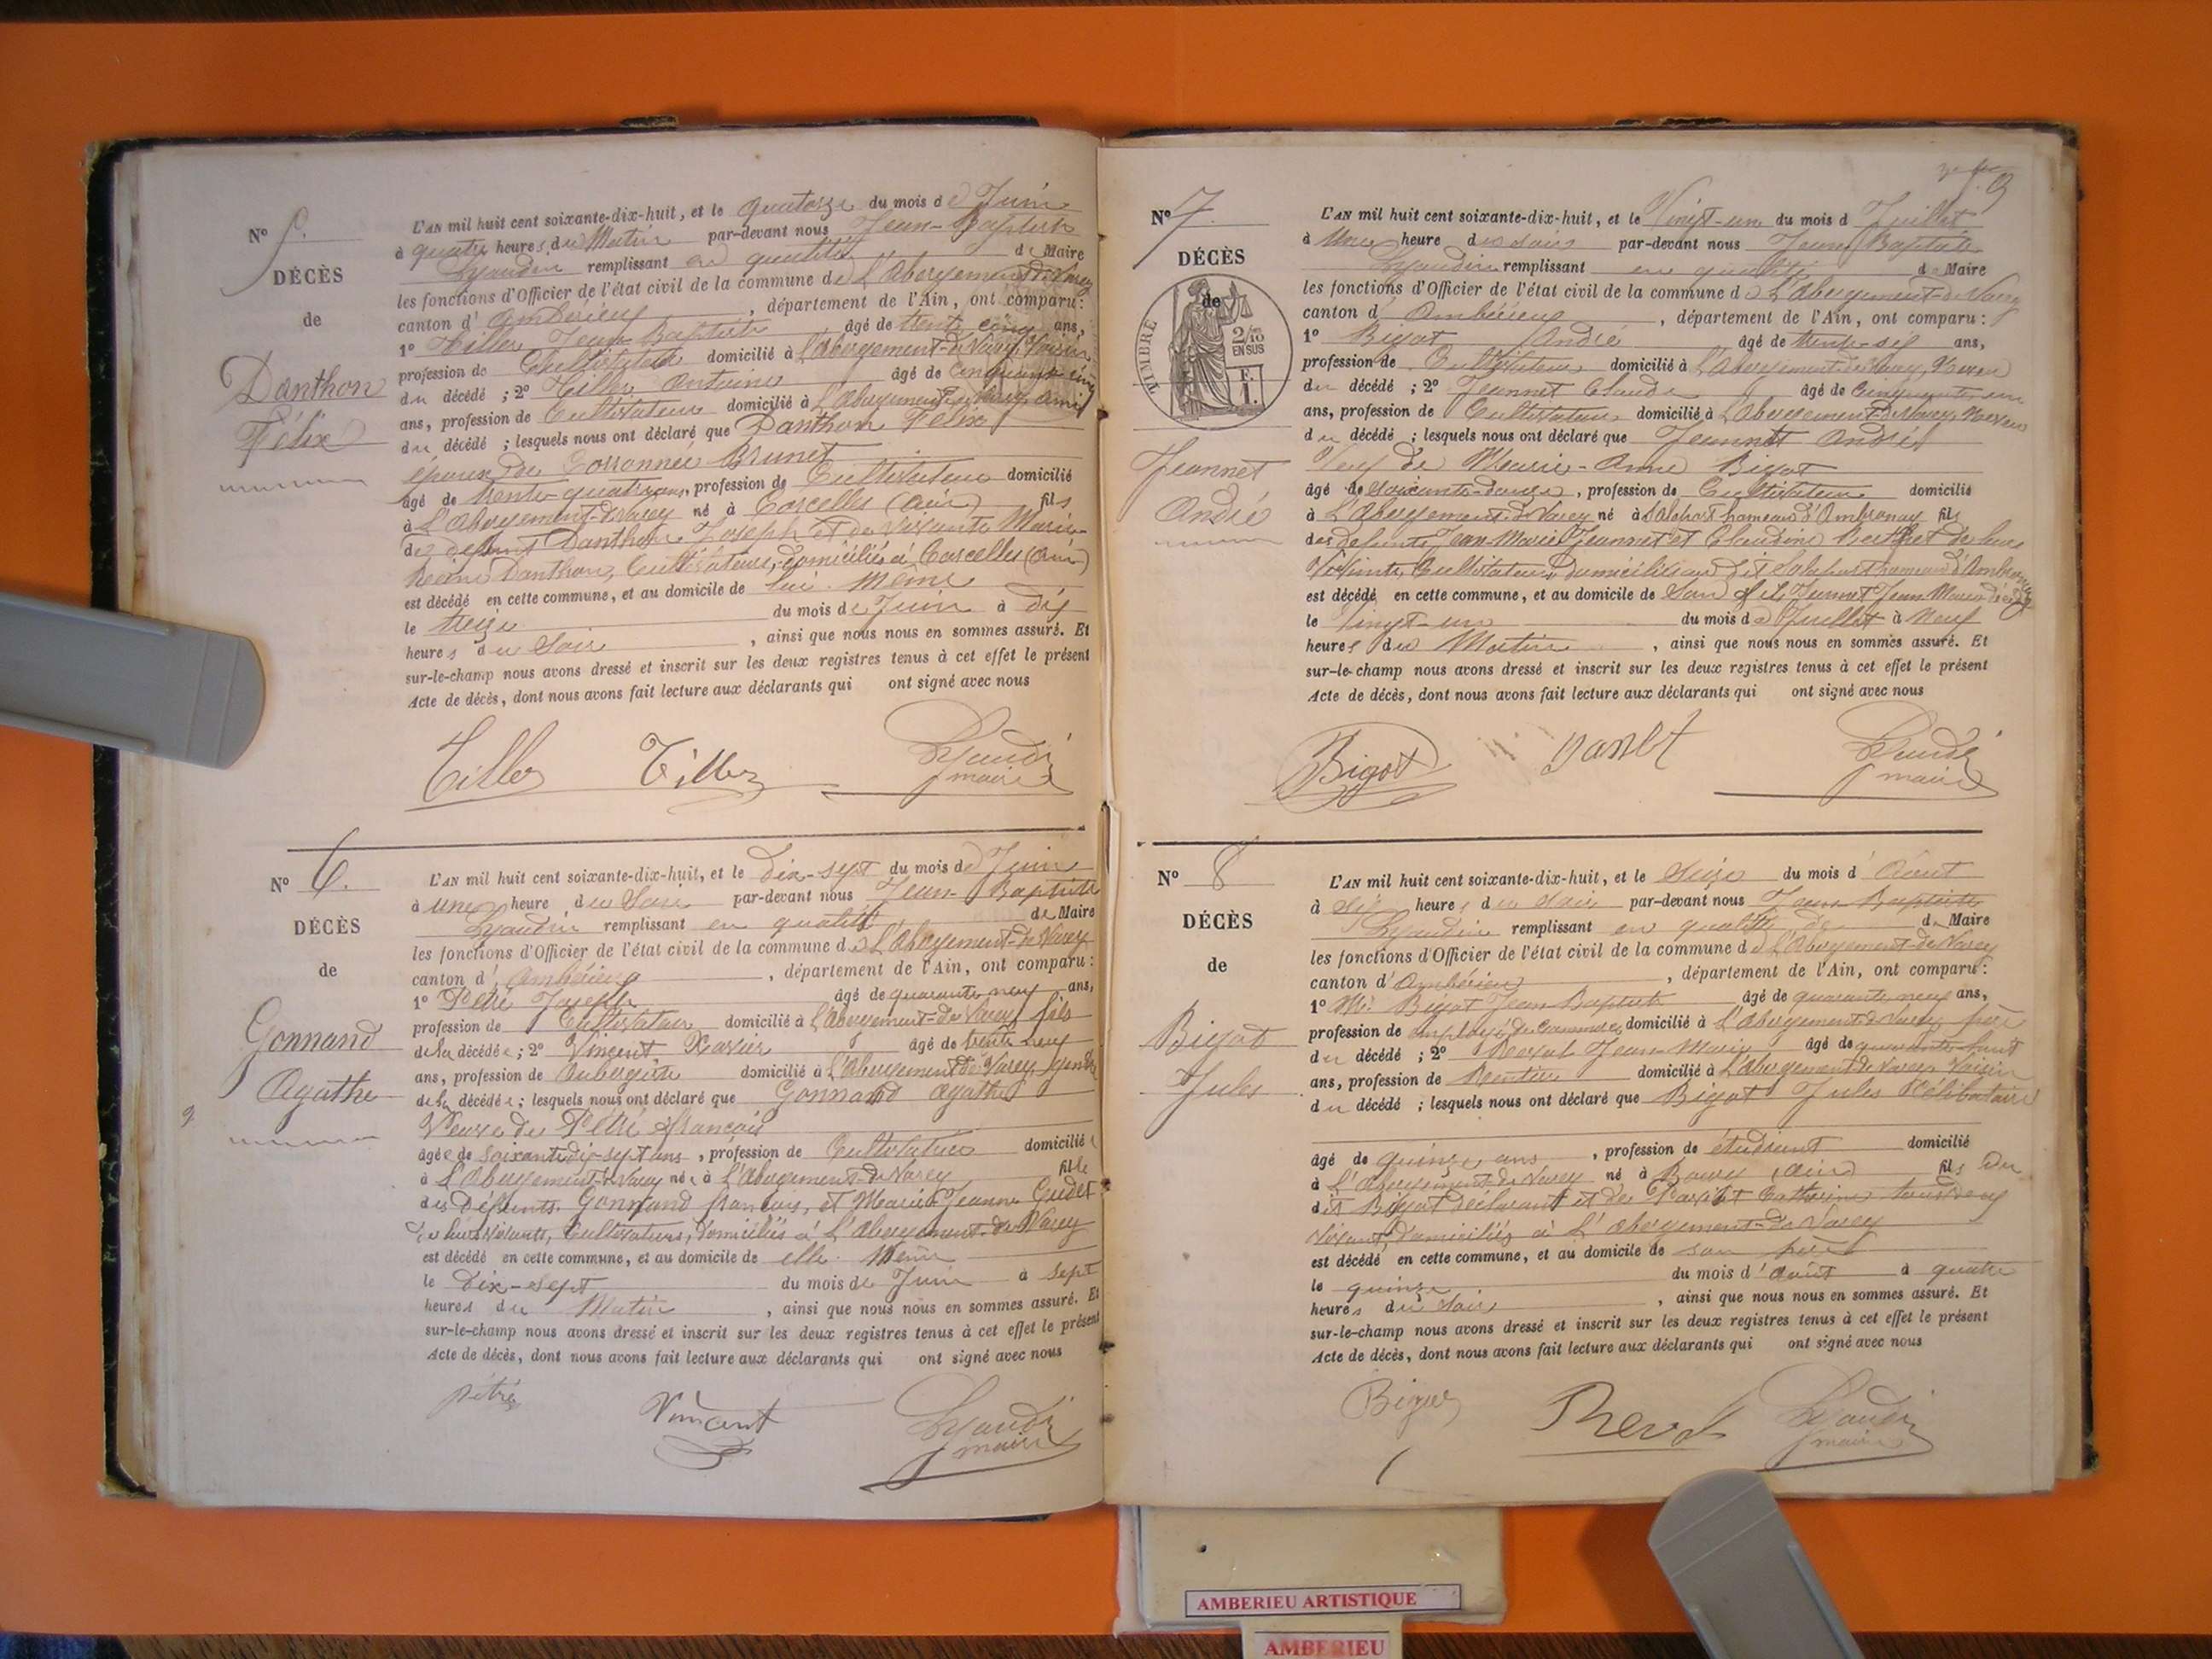 N° 5.
DÉCÈS
de
Danthon
Félix
L'AN mil huit cent soixante-dix-huit, et le quatorze du mois de Juin
à quatre heures du Matin par-devant nous Jean-Baptiste
Lyaudin remplissant en qualité de Maire
les fonctions d'Officier de l'état civil de la commune de L'Abergement-de-Varey
canton d'Ambérieu, département de l'Ain, ont comparu:
1° Tiller Jean Baptiste âgé de trente cinq ans,
profession de Cultivateur domicilié à L'Abergement-de-Varey, Voisin
du décédé; 2° Tiller Antoine âgé de cinquante cinq
ans, profession de Cultivateur domicilié à L'Abergement-de-Varey ami
du décédé; lesquels nous ont déclaré que Danthon Félix
époux de Brunet
âgé de trente-quatre ans, profession de Cultivateur domicilié
à L'Abergement-de-Varey né à Corcelles (Ain) fils
des défunt Danthon Joseph et de vivante Marie
Reine Danthon, Cultivateurs, domiciliés à Corcelles (Ain)
est décédé en cette commune, et au domicile de lui-Même
le treize du mois de Juin à dix
heures du Soir, ainsi que nous nous en sommes assuré. Et
sur-le-champ nous avons dressé et inscrit sur les deux registres tenus à cet effet le présent
Acte de décès, dont nous avons fait lecture aux déclarants qui ont signé avec nous
Tiller Tiller Lyaudin
maire
N° 6.
DÉCÈS
de
Gonnand
Agathe
L'AN mil huit cent soixante-dix-huit, et le Dix-sept du mois de Juin
à une heure du Soir par-devant nous Jean-Baptiste
Lyaudin remplissant en qualité de Maire
les fonctions d'Officier de l'état civil de la commune de L'Abergement-de-Varey
canton d'Ambérieu, département de l'Ain, ont comparu:
1° Pétré Joseph âgé de quarante neuf ans,
profession de Cultivateur domicilié à L'Abergement-de-Varey fils
de la décédée; 2° Vincent Xavier âgé de trente neuf
ans, profession de Aubergiste domicilié à L'Abergement-de-Varey, gendre
de la décédée; lesquels nous ont déclaré que Gonnand Agathe
Veuve de Pétré François
âgée de soixante dix-sept ans, profession de Cultivateur domiciliée
à L'Abergement-de-Varey née à L'Abergement-de-Varey fille
des Défunts Gonnand François, et Marie Jeanne Gudet
de leurs vivants, Cultivateurs, domiciliés à L'Abergement-de-Varey
est décédé en cette commune, et au domicile de elle-Même
le Dix-sept du mois de Juin à sept
heures du Matin, ainsi que nous nous en sommes assuré. Et
sur-le-champ nous avons dressé et inscrit sur les deux registres tenus à cet effet le présent
Acte de décès, dont nous avons fait lecture aux déclarants qui ont signé avec nous
pétré Vincent Lyaudin
maire
N° 7
DÉCÈS
de
TIMBRE
2/10
EN SUS
Jeannet
André
L'AN mil huit cent soixante-dix-huit, et le Vingt-un du mois d Juillet
à Une heure du soir par-devant nous Jean Baptiste
Lyaudin remplissant en qualité de Maire
les fonctions d'Officier de l'état civil de la commune de L'Abergement-de-Varey
canton d'Ambérieu, département de l'Ain, ont comparu:
1° Bigot André âgé de trente-six ans,
profession de Cultivateur domicilié à L'Abergement-de-Varey, Neveu
du décédé; 2° Jeannet Claude âgé de cinquante un
ans, profession de Cultivateur domicilié à L'Abergement-de-Varey, Neveu
du décédé; lesquels nous ont déclaré que Jeannet André
Veuf de Marie-Anne Bigot
âgé de soixante-douze, profession de Cultivateur domicilié
à L'Abergement-de-Varey né à hameau d'Ambronay fils
des Défunts Jean-Marie Jeannet et Claudine de leurs
Vivants, Cultivateurs, domiciliés au dit hameau d'Ambronay
est décédé en cette commune, et au domicile de Son fils Jeannet Jean Marie
le Vingt-un du mois de Juillet à Neuf
heures du Matin, ainsi que nous nous en sommes assuré. Et
sur-le-champ nous avons dressé et inscrit sur les deux registres tenus à cet effet le présent
Acte de décès, dont nous avons fait lecture aux déclarants qui ont signé avec nous
Bigot Lyaudin
maire
N° 8
DÉCÈS
de
Bigot
Jules
L'AN mil huit cent soixante-dix-huit, et le Seize du mois d'Août
à six heures du soir par-devant nous Jean Baptiste
Lyaudin remplissant en qualité de de Maire
les fonctions d'Officier de l'état civil de la commune de L'Abergement-de-Varey
canton d'Ambérieu, département de l'Ain, ont comparu:
1° Mr Bigot Jean-Baptiste âgé de quarante neuf ans,
profession de employé de Commerce, domicilié à L'Abergement-de-Varey père
du décédé; 2° Revol Jean-Marie âgé de quarante-huit
ans, profession de Rentier domicilié à L'Abergement-de-Varey Voisin
du décédé; lesquels nous ont déclaré que Bigot Jules Célibataire
âgé de quinze ans, profession de étudiant domicilié
à L'Abergement-de-Varey né à Bourg (Ain) fils du
dit Bigot déclarant et de Catherine tous deux
vivant, domiciliés à L'Abergement-de-Varey
est décédé en cette commune, et au domicile de son père
le quinze du mois d'août à quatre
heures du soir, ainsi que nous nous en sommes assuré. Et
sur-le-champ nous avons dressé et inscrit sur les deux registres tenus à cet effet le présent
Acte de décès, dont nous avons fait lecture aux déclarants qui ont signé avec nous
Bigot Revol Lyaudin
maire
AMBERIEU ARTISTIQUE
AMBERIEU